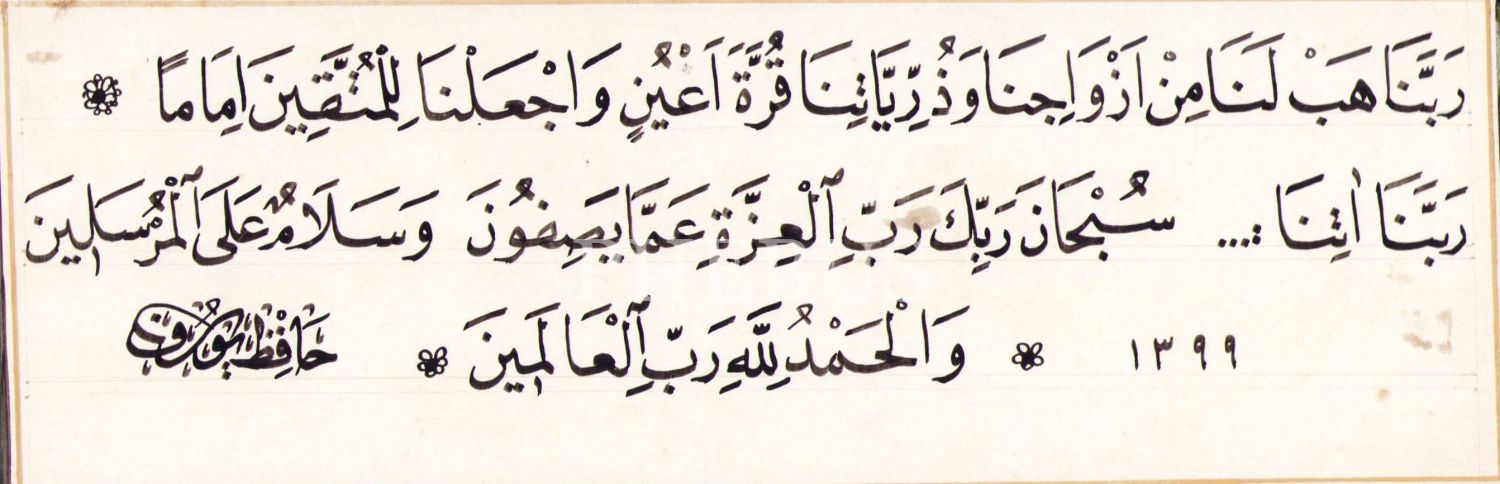 رَبَّنَا هَبْ لَنَا مِنْ اَزْوَاجِنَا وَذُرِّيَّاتِنَا قُرَّةَ اَعْيُنٍ وَاجْعَلْنَا لِلْمُتَّقِينَ اِمَامًا
رَبَّنَا اٰتِنَا .... سُبْحَانَ رَبِّكَ رَبِّ ٱلْعِزَّةِ عَمَّا يَصِفُونَ وَسَلَامٌ عَلَى ٱلْمُرْسَلِينَ
وَالْحَمْدُ لِلَّهِ رَبِّ ٱلْعَالَمِينَ ١٣٩٩